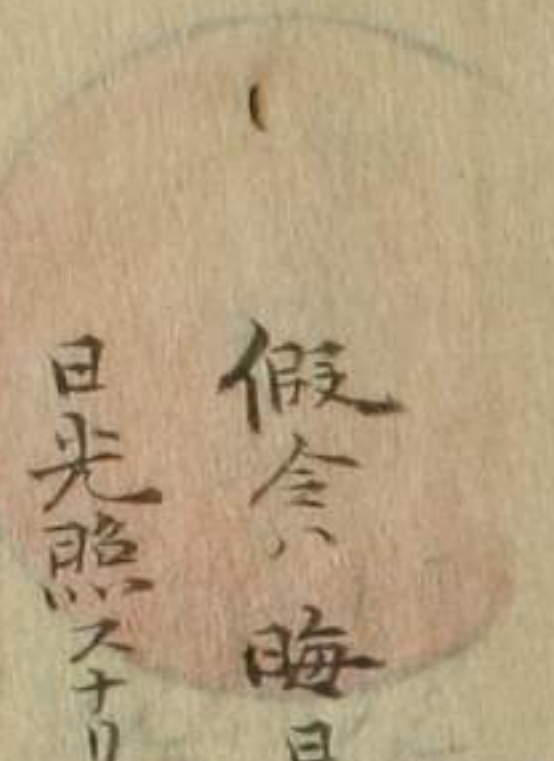 假令ハ晦日
日光照スナリ